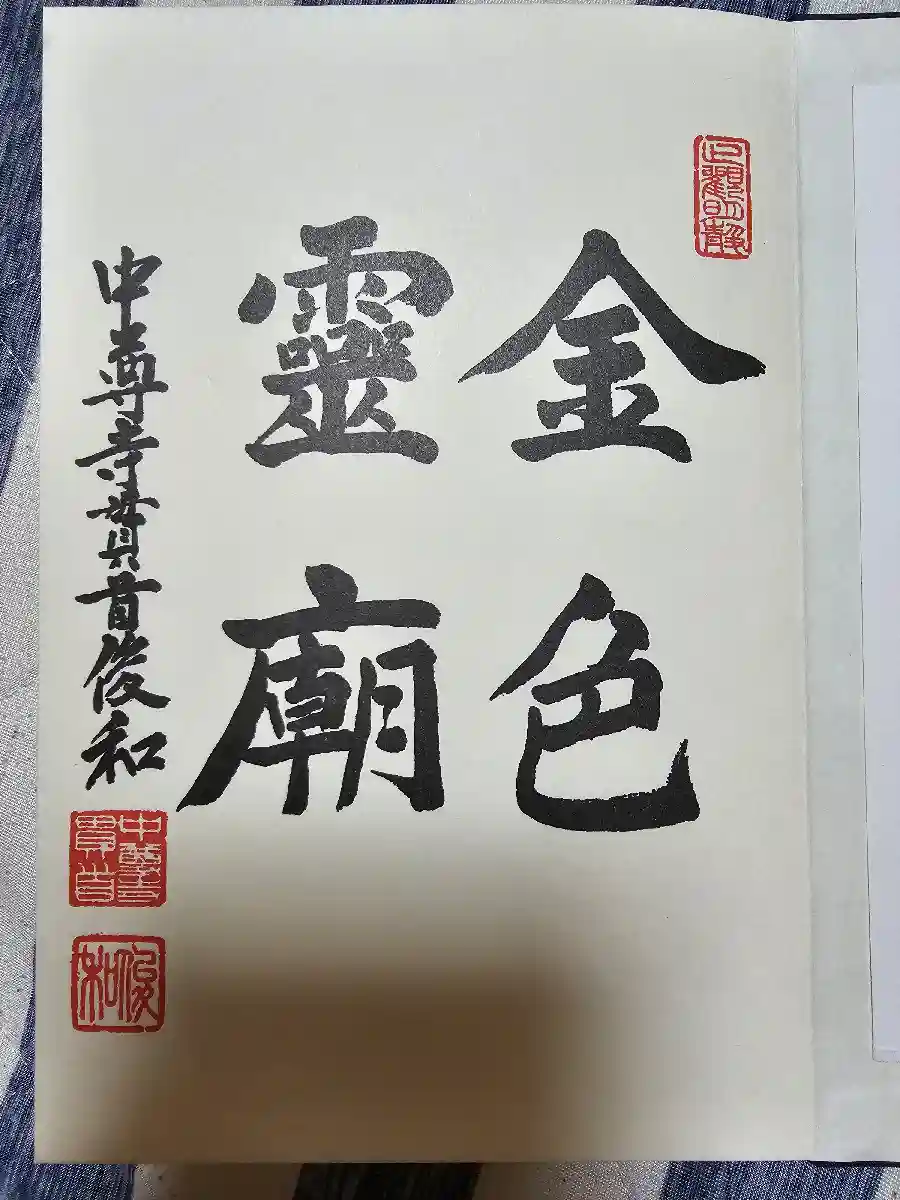 止觀明静
金色
靈廟
中尊寺貫首俊和
中尊寺
貫首
俊
和